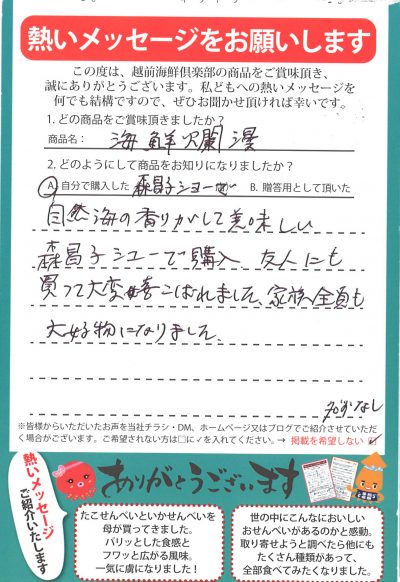 熱いメッセージをお願いします
この度は、越前海鮮倶楽部の商品をご賞味頂き、
誠にありがとうございます。私どもへの熱いメッセージを
何でも結構ですので、ぜひお聞かせ頂ければ幸いです。
1. どの商品をご賞味頂きましたか？
商品名： 海鮮爛漫
2. どのようにして商品をお知りになりましたか？
A. 自分で購入した 森昌子ショーで B. 贈答用として頂いた
自然海の香りがして美味しい
森昌子ショーで購入、友人にも
買って大変喜こばれました、家族全員も
大好物になりました。
※皆様からいただいたお声を当社チラシ・DM、ホームページ又はブログでご紹介させていただ
く場合がございます。ご希望されない方は□に✓を入れてください。→ 掲載を希望しない ☑
熱いメッセージ
ご紹介いたします
ありがとうございます
たこせんべいといかせんべいを
母が買ってきました。
パリッとした食感と
フワッと広がる風味。
一気に虜になりました！
世の中にこんなにおいしい
おせんべいがあるのかと感動。
取り寄せようと調べたら他にも
たくさん種類があって、
全部食べてみたくなりました。